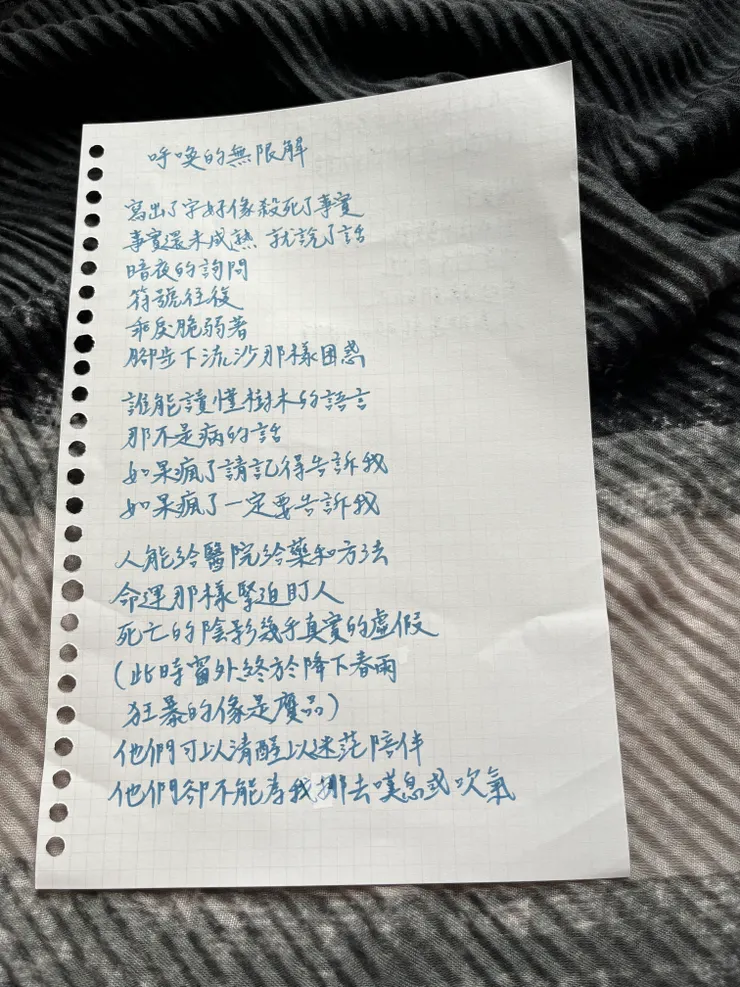 呼喚的無限解
寫出了字好像殺死了事實
事實還未成熟 就說了話
暗夜的詢問
符號往復
乖戾脆弱著
腳步下流沙那樣困惑
誰能讀懂樹木的語言
那不是病的話
如果瘋了請記得告訴我
如果瘋了一定要告訴我
人能給醫院給藥和方法
命運那樣緊迫盯人
死亡的陰影幾乎真實的虛假
(此時窗外終於降下春雨
狂暴的像是贗品)
他們可以清醒以迷茫陪伴
他們卻不能為我挪去嘆息或吹氣